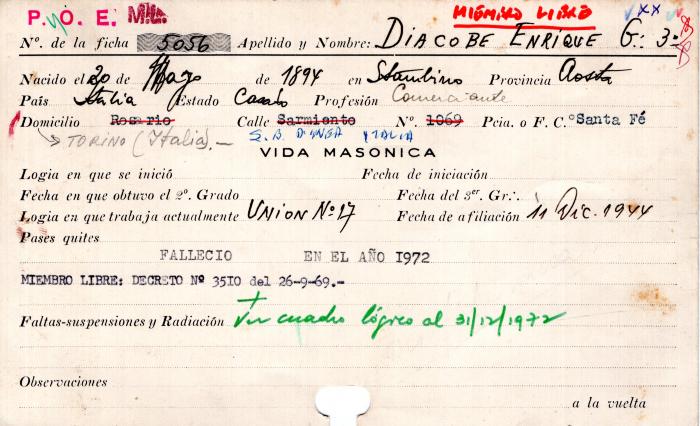 P. O. E. MIEMBRO LIBRE XX
Nº. de la ficha 5056 Apellido y Nombre: DIACOBE ENRIQUE G∴ 3∴
Nacido el 20 de Mayo de 1894 en Stambino Provincia Aosta
País Italia Estado Casado Profesión Comerciante
Domicilio Rosario Calle Sarmiento Nº. 1069 Pcia. o F. C. Santa Fé
TORINO (Italia).- ITALIA
VIDA MASONICA
Logia en que se inició Fecha de iniciación
Fecha en que obtuvo el 2º. Grado Fecha del 3er. Gr∴
Logia en que trabaja actualmente UNION Nº 17 Fecha de afiliación 11 Dic. 1944
Pases quites
FALLECIO EN EL AÑO 1972
MIEMBRO LIBRE: DECRETO Nº 3510 del 26-9-69.-
Faltas-suspensiones y Radiación Ver cuadro lógico al 31/12/1972
Observaciones
a la vuelta